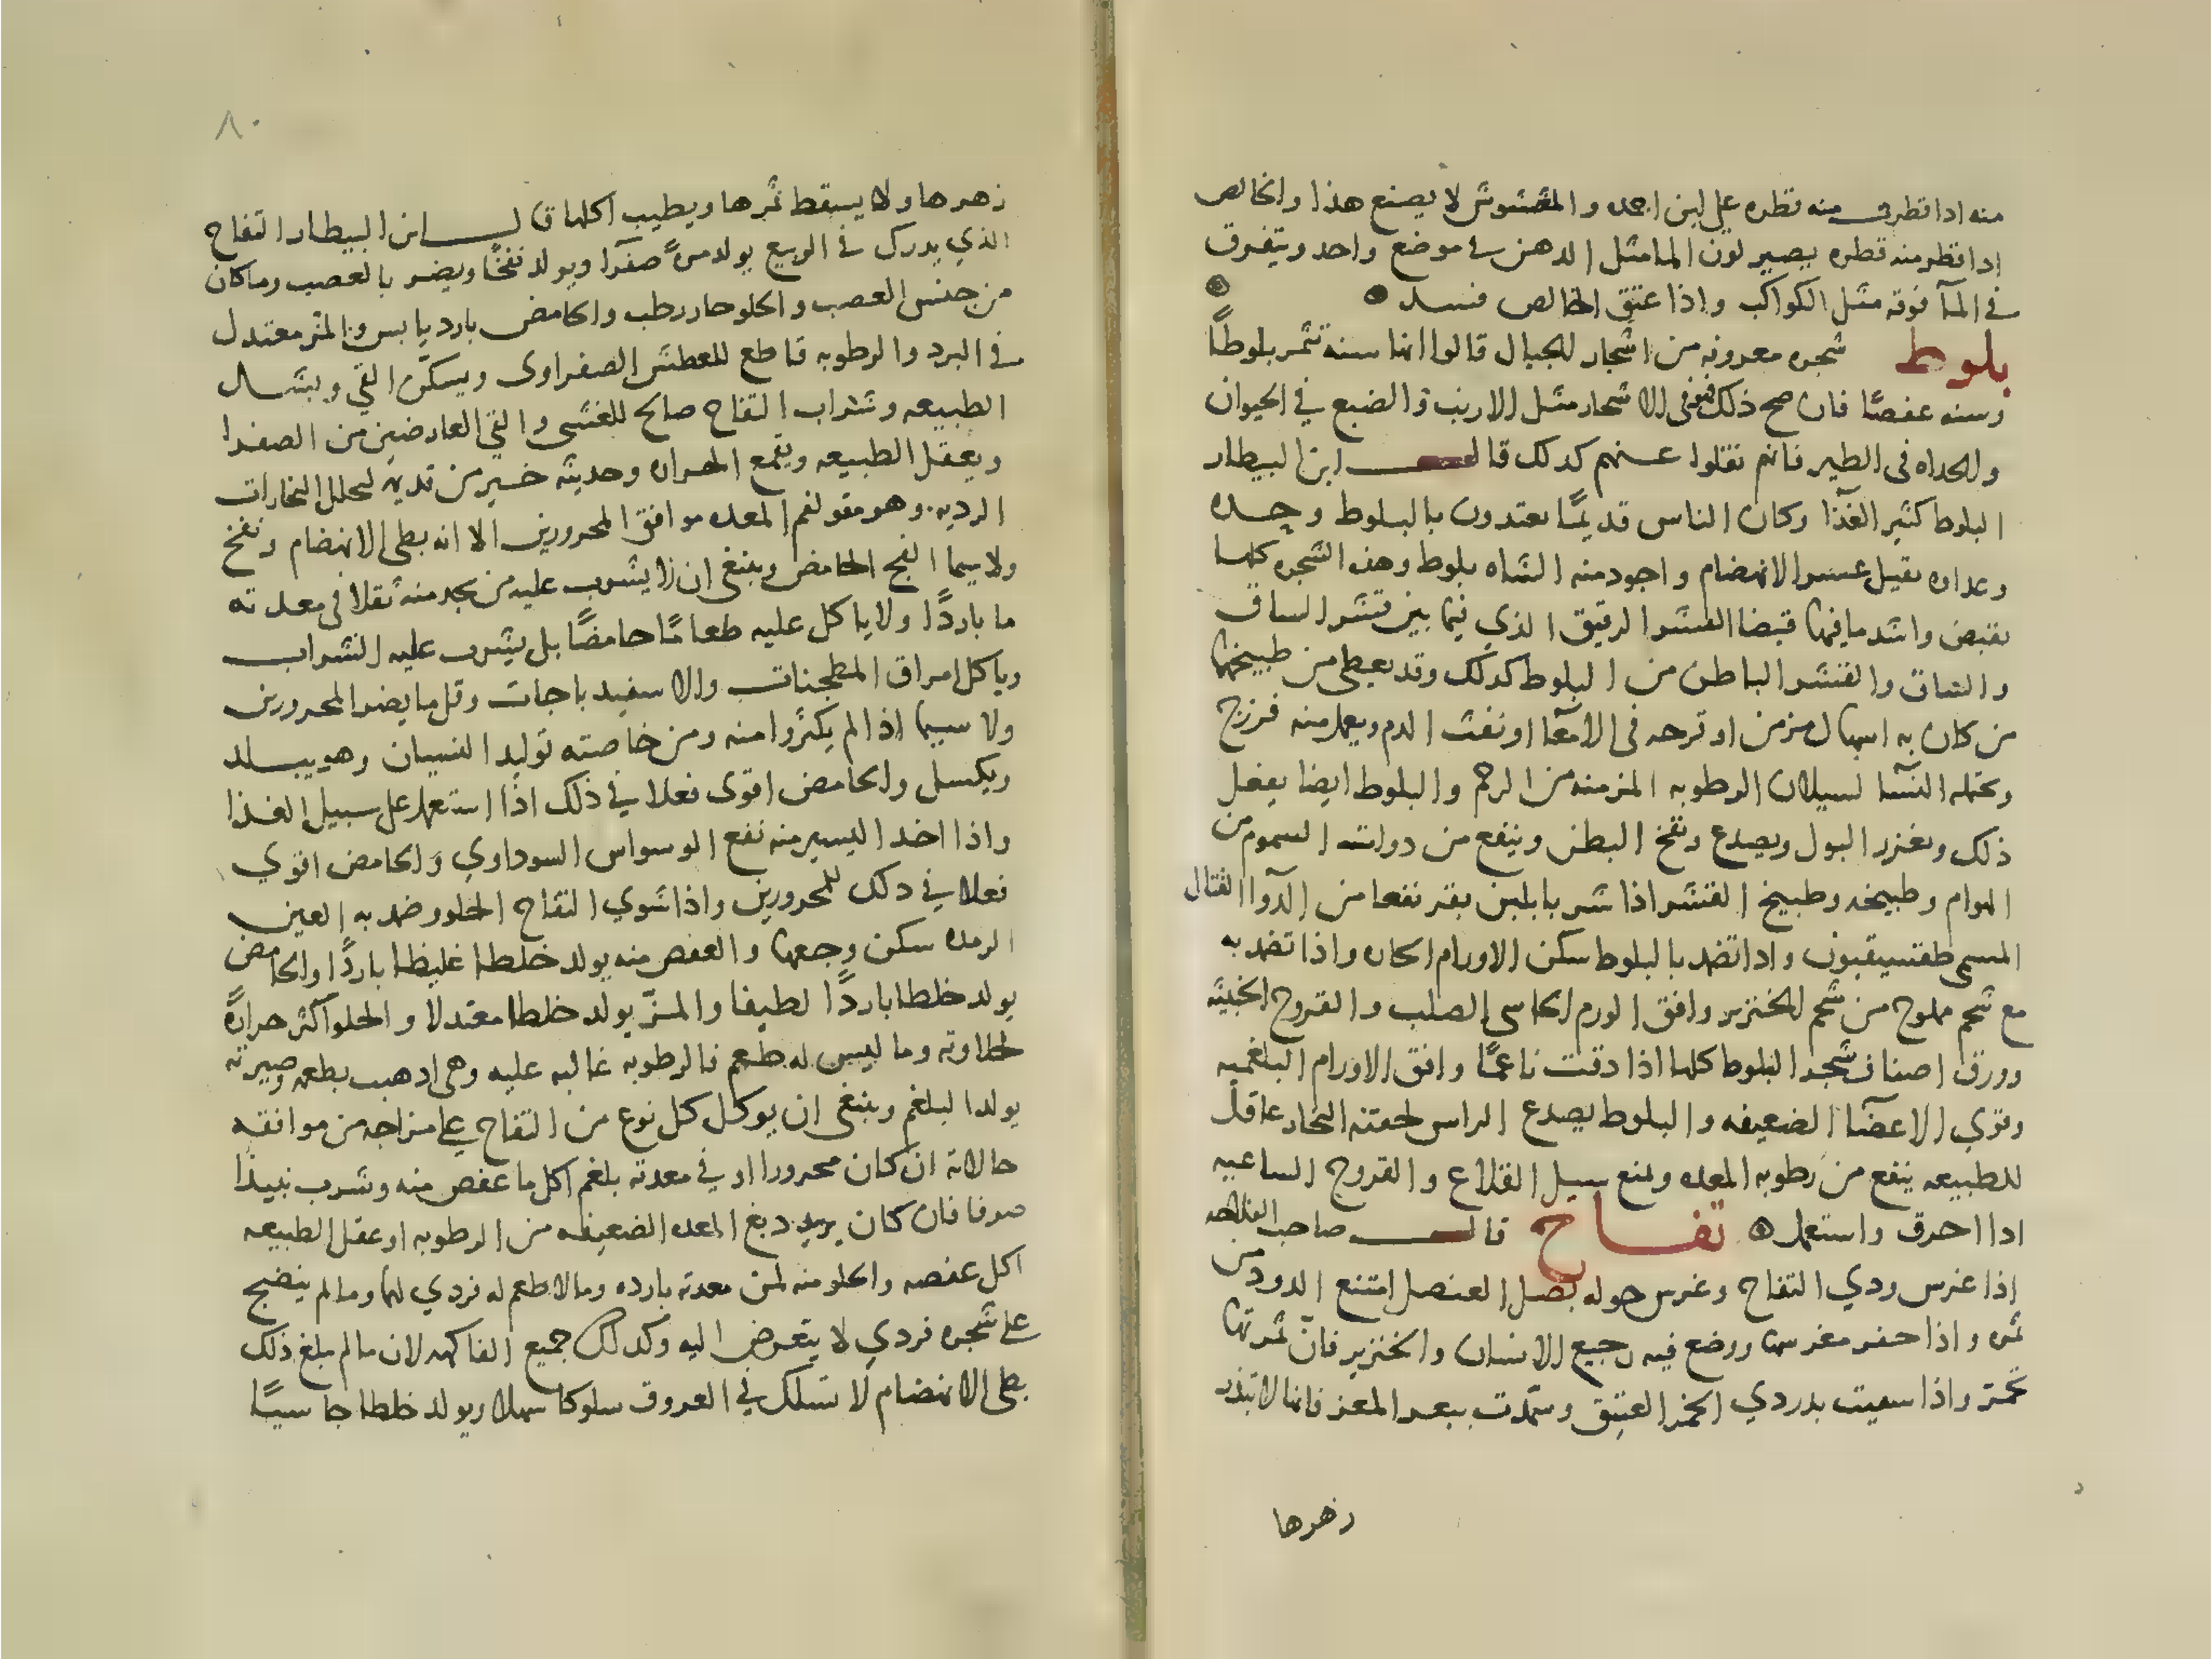 منه اذا قطر منه قطره على لبن اجمده والمغشوش لا يصنع هذا والخالص
اذا قطر منه قطره يصير لون الما مثل الدهن في موضع واحد ويتفرق
في المآ فوقه مثل الكواكب واذا عتق الخالص فسد
بلوط شجره معروفه من اشجار الجبال قالوا انها سنه تثمر بلوطًا
وسنه عفصًا فان صح ذلك فهو في الاشجار مثل الارنب والضبع في الحيوان
والحداه في الطير فانهم نقلوا عنهم كدلك قال ابن البيطار
البلوط كثير الغذآ وكان الناس قديمًا يعتدون بالبلوط وحده
وغداوه ثقيل عسر الانهضام واجود منه الشاه بلوط وهذه الشجره كلها
تقبض واشد ما فيها قبضا القشر الرقيق الذي فيما بين قشر الساق
والساق والقشر الباطن من البلوط كدلك وقد يعطى من طبيخها
من كان به اسهال مزمن او قرحه في الامعآ او نفث الدم ويعمل منه فرزج
وتحتمله النسآ لسيلان الرطوبه المزمنه من الرحم والبلوط ايضا يفعل
ذلك ويغزر البول ويصدع وينفخ البطن وينفع من دوات السموم من
الهوام وطبيخه وطبيخ القشر اذا شربا بلبن بقر نفعا من الدوآ القتال
المسمى طقسيقون واذا تضمد بالبلوط سكن الاورام الحاره واذا تضمد به
مع شحم مملوح من شحم الخنزير وافق الورم الجاسي الصلب والقروح الخبيثه
وورق اصناف شجر البلوط كلها اذا دقت ناعمًا وافق الاورام البلغميه
وقوي الاعضآ الضعيفه والبلوط يصدع الراس لحقنه البخار عاقل
للطبيعه ينفع من رطوبه المعده ويمنع سيل القلاع والقروح الساعيه
اذا احرق واستعمل تفاح قال صاحب الفلاحه
اذا غرس ودي التفاح وغرس حوله بصل العنصل امتنع الدود من
ثمره واذا حفر مغرسها ووضع فيه رجيع الانسان والخنزير فان ثمرتها
تحمر واذا سقيت بدردي الخمر العتيق وسمدت ببعر المعز فانها لا تبذر
زهرها
٨٠
زهرها ولا يسقط ثمرها ويطيب اكلها قال ابن البيطار التفاح
الذي يدرك في الربيع يولد مرة صفرآ ويولد نفخًا ويضر بالعصب وما كان
من جنس العصب والحلو حار رطب والحامض بارد يابس والمز معتدل
في البرد والرطوبه قاطع للعطش الصفراوى ويسكن القي
الطبيعه وشراب التفاح صالح للغشى والقي العارضين من الصفرا
ويعقل الطبيعه ويقمع الحراره وحديثه خير من قديمه لتحلل البخارات
الرديه وهو مقو لفم المعده موافق المحرورين الا انه بطى الانهضام ونفخ
ولا سيما الفج الحامض وينبغى ان لا يشرب عليه من يجد منه ثقلا في معدته
ما باردًا ولا ياكل عليه طعامًا حامضًا بل يشرب عليه الشراب
وياكل امراق المطجنات والاسفيدباجات وقل ما يضر المحرورين
ولا سيما اذا لم يكثروا منه ومن خاصته توليد النسيان وهو يبلد
ويكسل والحامض اقوى فعلا في ذلك اذا استعمل على سبيل الغذا
واذا اخد اليسير منه نفع الوسواس السوداوي والحامض اقوي
فعلا في دلك للمحرورين واذا شوي التفاح الحلو وضمد به العين
الرمده سكن وجعها والعفص منه يولد خلطا غليظا باردًا والحامض
يولد خلطا باردًا لطيفا والمز يولد خلطا معتدلا والحلو اكثر حرارة
لحلاوته وما ليس له طعم فالرطوبه غالبه عليه وهى اذهبت بطعمه وصيرته
يولد البلغم وينبغى ان يوكل كل نوع من التفاح على مزاجه من موافقه
حالاته ان كان محرورا او في معدته بلغم اكل ما عفص منه وشرب نبيذا
صرفا فان كان يريد دبغ المعده الضعيفه من الرطوبه او عقل الطبيعه
اكل عفصه والحلو منه لمن معدته بارده وما لا طعم له فردي لها وما لم ينضج
على شجره فردي لا يتعرض اليه وكدلك جميع الفاكهه لان ما لم يبلغ ذلك
بطى الانهضام لا تسلك في العروق سلوكا سهلا ويولد خلطا جاسيًا